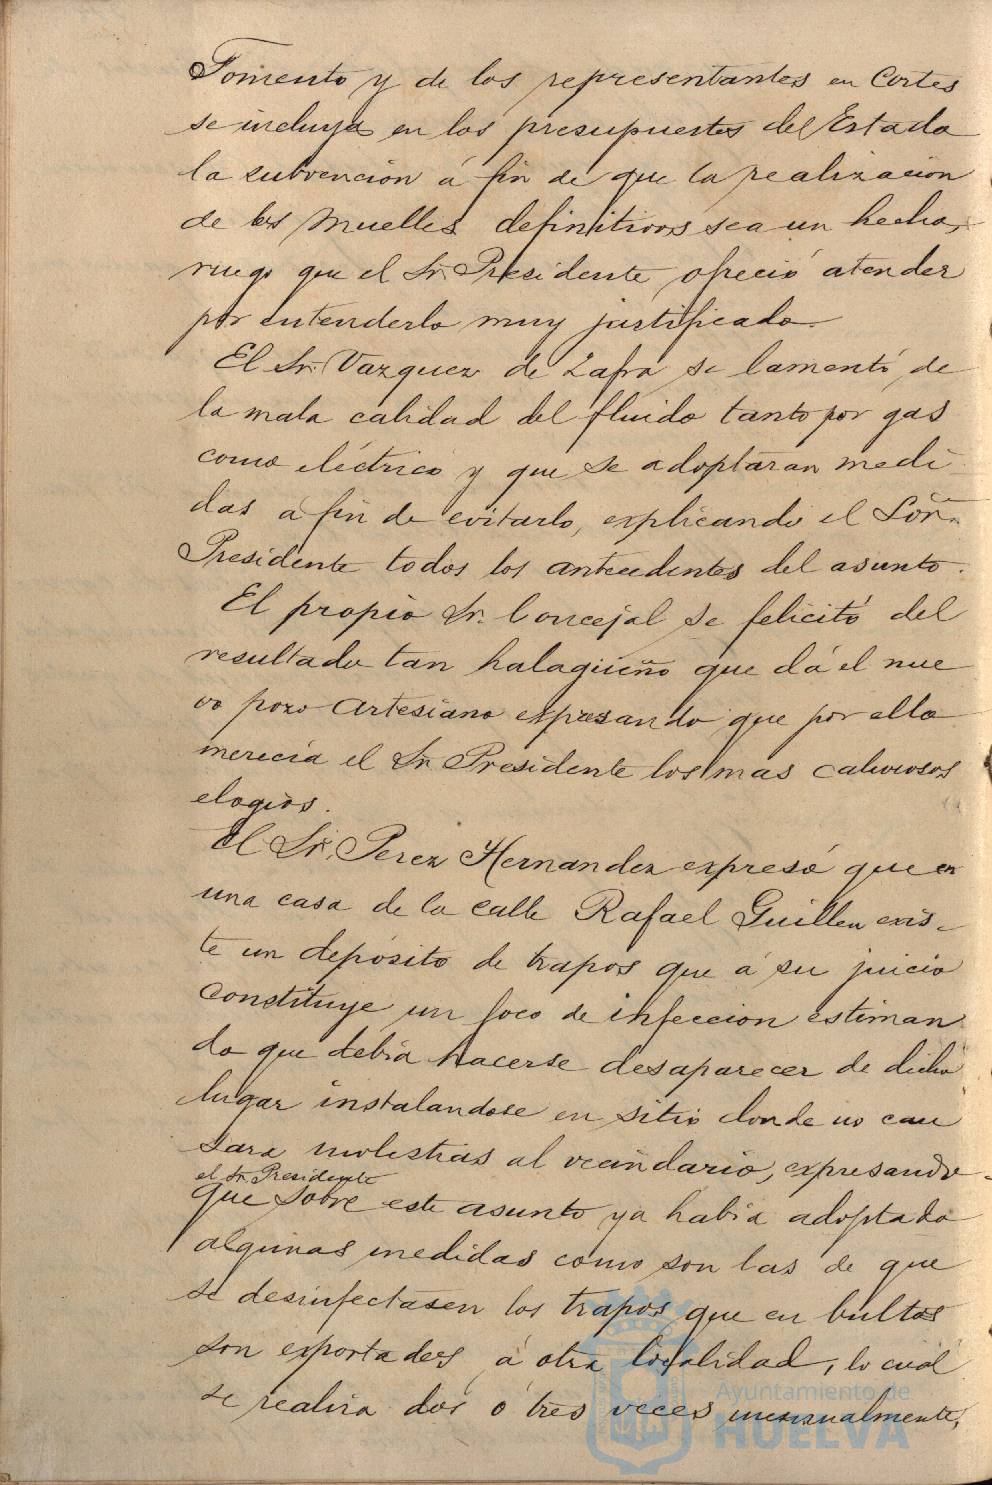 Fomento y de los representantes en Cortes
se incluya en los presupuestos del Estado
la subvencion á fin de que la realizacion
de los muelles definitivos sea un hecho,
ruego que el Sr. Presidente ofreció atender
por entenderlo muy justificado.
El Sr. Vazquez de Zafra se lamentó de
la mala calidad del fluido tanto por gas
como eléctrico y que se adoptaran medi
das á fin de evitarlo, explicando el Señr.
Presidente todos los antecedentes del asunto.
El propio Sr. Concejal se felicitó del
resultado tan halagüeño que dá el nue
vo pozo artesiano expresando que por ello
merecia el Sr. Presidente los mas calurosos
elogios.
El Sr. Perez Hernandez expresó que en
una casa de la calle Rafael Guillen exis-
te un depósito de trapos que á su juicio
constituye un foco de infeccion estiman
do que debia hacerse desaparecer de dicho
lugar instalandose en sitio donde no cau
sara molestias al vecindario, expresando
el Sr. Presidente
que sobre este asunto ya habia adoptado
algunas medidas como son las de que
se desinfectasen los trapos que en bultos
son exportados á otra localidad, lo cual
se realiza dos ó tres veces mensualmente,
Ayuntamiento de
HUELVA